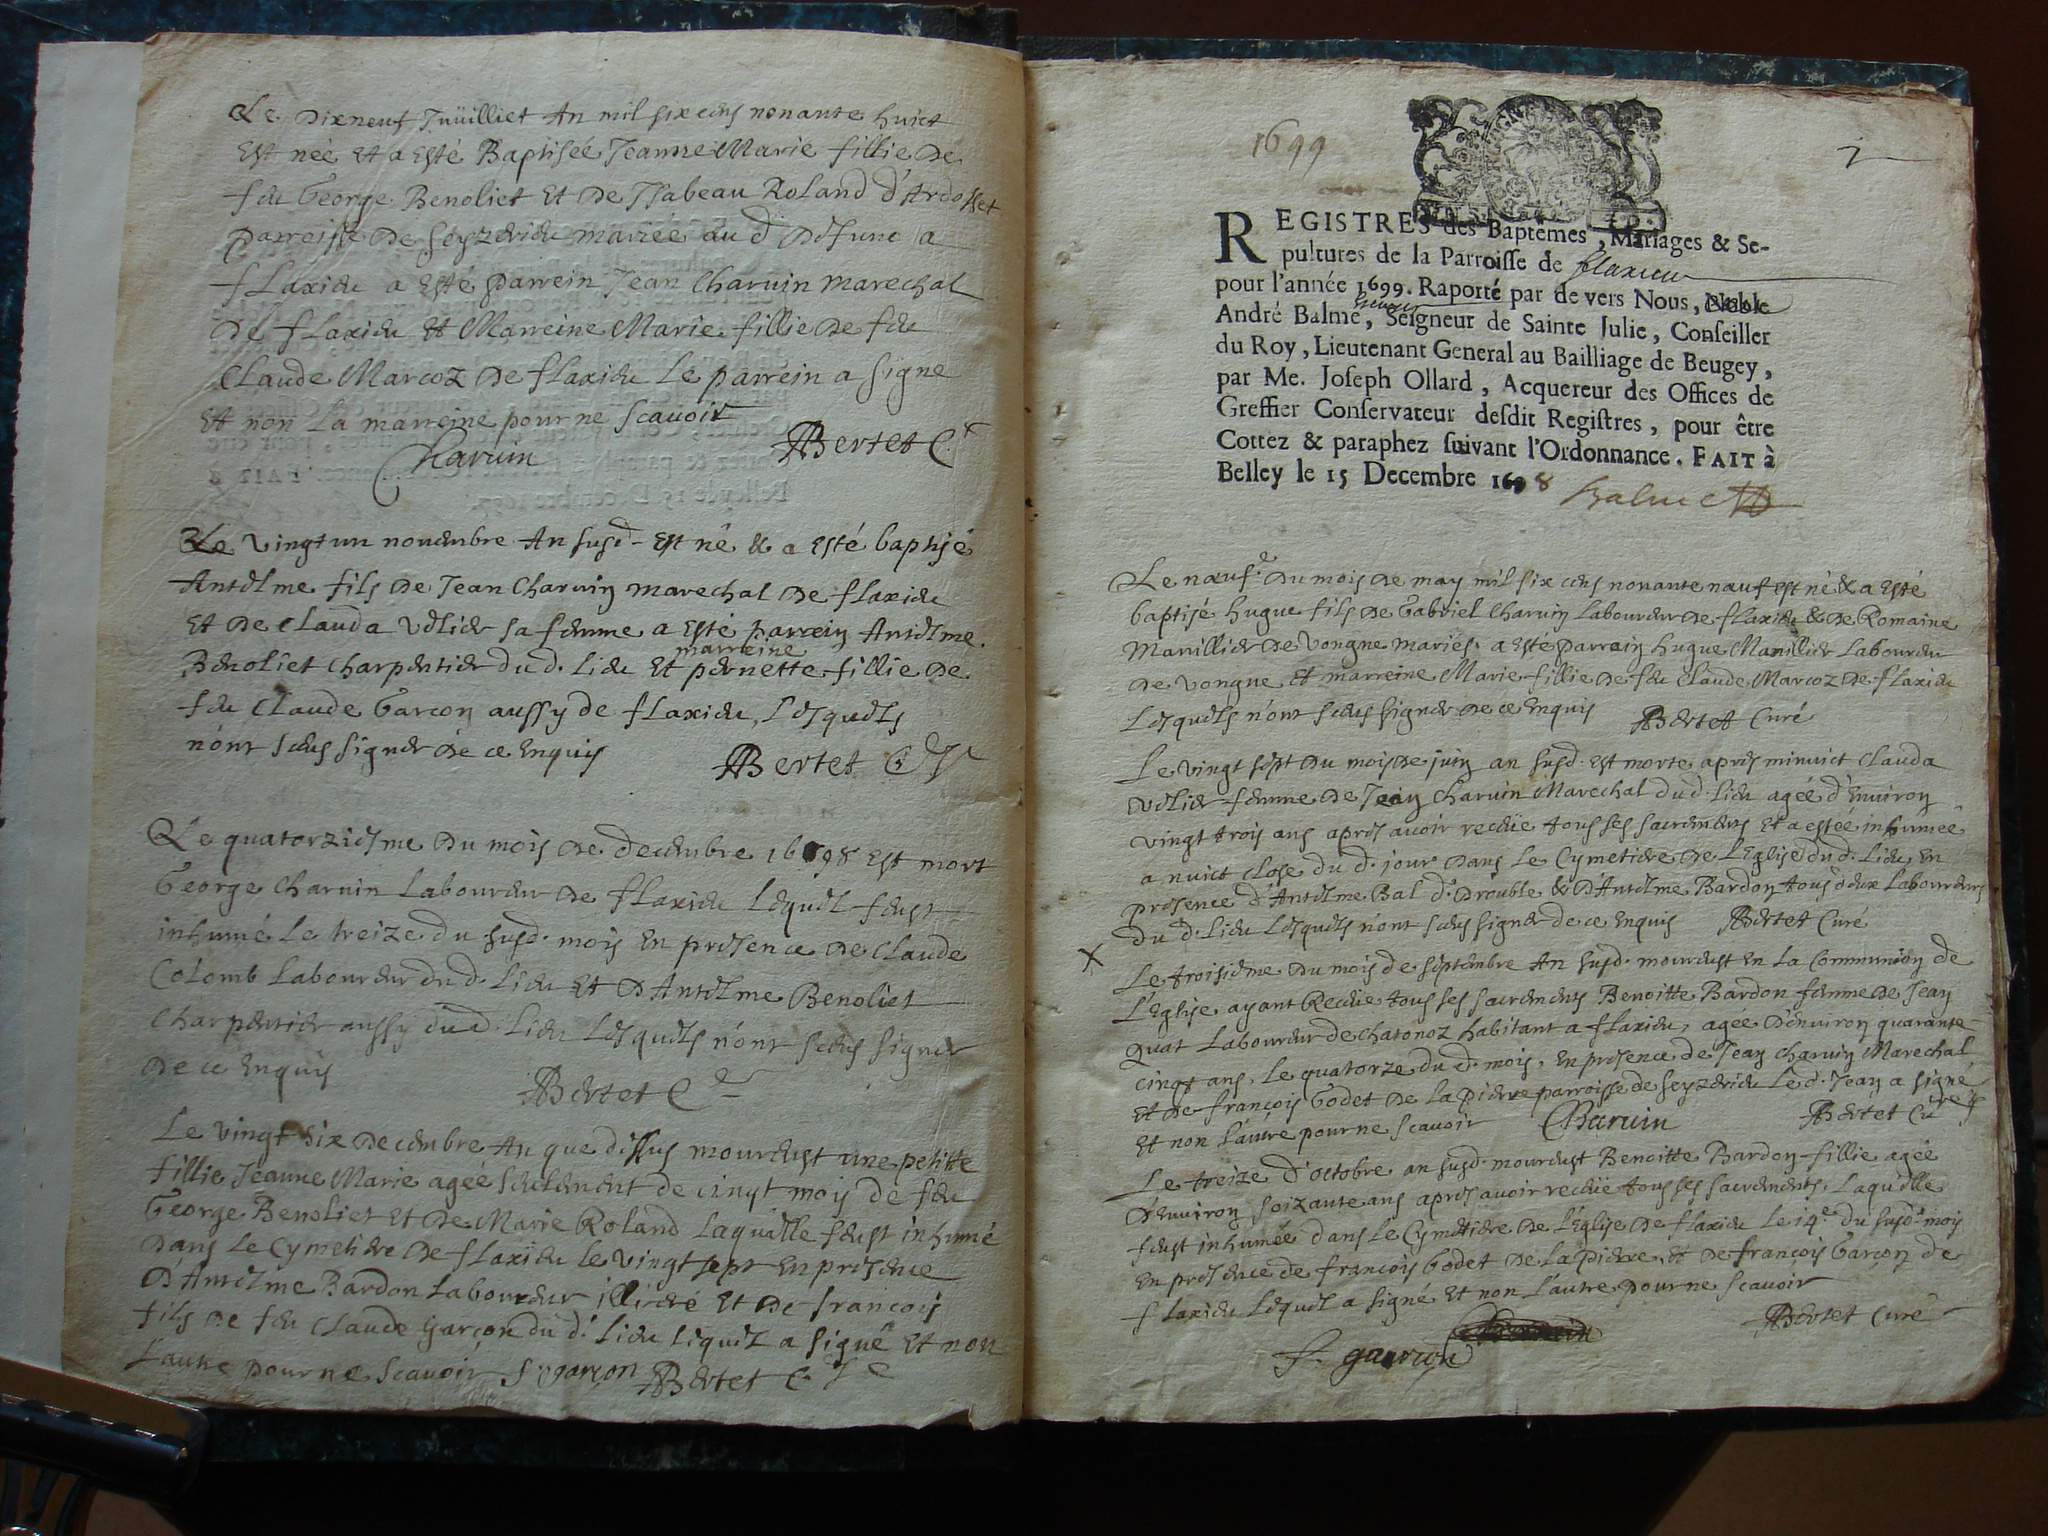 Le dixneuf Juüilliet An mil six cens nonante huict
Est née et a Esté Baptisée Jeanne Marie fillie de
feu George Benoliet Et de Isabeau Roland d'Ardosset
parroisse de seyzerieu mariée aud defunc a
flaxieu a Esté parrein Jean Charuin marechal
de flaxieu Et Marreine Marie fillie de feu
Claude Marcoz de flaxieu Le parrein a signe
Et non La marreine pour ne scauoir
Charuin Bertet C
Le vingt un nouembre An susd. Est né & a Esté baptisé
Antelme fils de Jean Charuin marechal de flaxieu
Et de Clauda Velier sa femme a Esté parrein Antelme
marreine
Benoliet Charpentier dud. Lieu Et pernette fillie de
feu Claude Garcon aussy de flaxieu, Lesquels
n'ont sceus signer de ce Enquis
Bertet C
Le quatorziesme du mois de decembre 1698 est mort
George Charuin Laboureur de flaxieu Lequel feust
inhumé Le treize du susd. mois En presence de Claude
Colomb Laboureur dud. Lieu Et d'Antelme Benoliet
Charpentier aussy dud. Lieu Lesquels n'ont sceus signer
de ce Enquis
Bertet C
Le vingt six decembre An que dessus moureust une petitte
fillie Jeanne Marie agée seulement de cinqt mois de feu
George Benoliet Et de Marie Roland Laquelle feust inhumé
dans Le Cymetiere de flaxieu le vingt sept En presence
d'Antelme Bardon Laboureur illiteré Et de francois
fils de feu Claude Garçon du d. Lieu Lequel a signé Et non
L'autre pour ne scauoir f garçon Bertet C
1699
2
REGISTRES des Baptêmes, Mariages & Se-
pultures de la Parroisse de flaxieu
pour l'année 1699. Raporté par de vers Nous, Noble
Escuyer
André Balme, Seigneur de Sainte Julie, Conseiller
du Roy, Lieutenant General au Bailliage de Beugey,
par Me. Joseph Ollard, Acquereur des Offices de
Greffier Conservateur desdit Registres, pour être
Cottez & paraphez suivant l'Ordonnance. FAIT à
Belley le 15 Decembre 1698 Balme
Le nœuf.e du mois de may mil six cens nonante nœuf est né & a Esté
baptisé hugue fils de Gabriel Charuin Laboureur de flaxieu & de Romaine
Manillier de Vongne mariés. a Esté Parrain hugue Manillier Laboureur
de vongne Et marreine Marie fillie de feu Claude Marcoz de flaxieu
Lesquels n'ont sceus signer de ce Enquis Bertet Curé
Le vingt sept du mois de juin an susd. est morte apres minuict Clauda
Velier femme de Jean Charuin Marechal dud. Lieu agée d'Enuiron
vingt trois ans apres auoir receüe tous ses sacrements Et a estée inhumée
a nuict close du d. jour dans Le Cymetiere de L'Eglise dud. Lieu En
presence d'Antelme Bal d. Drouble & d'Antelme Bardon tous deux Laboureurs
du d. Lieu Lesquels n'ont sceus signer de ce Enquis Bertet Curé
X
Le troisieme du mois de septembre An susd. moureust En La Communion de
L'Eglise ayant Receüe tous ses sacrements Benoitte Bardon femme de Jean
Quat Laboureur de Chatonoz habitant a flaxieu, agée d'enuiron quarante
cinqt ans, Le quatorze du d. mois, En presence de Jean Charuin Marechal
Et de françois Godet de La pierre parroisse de seyzerieu Le d. Jean a signé
Et non L'autre pour ne scauoir Charuin Bertet Curé
Le treize d'octobre an susd. mourust Benoitte Bardon fillie agée
d'Enuiron soizante ans apres auoir receüe tous ses sacrements, Laquelle
feust inhumée dans Le Cymetiere de L'Eglise de flaxieu Le 14e du susd. mois
En presence de francois Godet de La pierre, Et de françois Garçon de
flaxieu Lequel a signé Et non L'autre pour ne scauoir
Bertet Curé
f. garcon